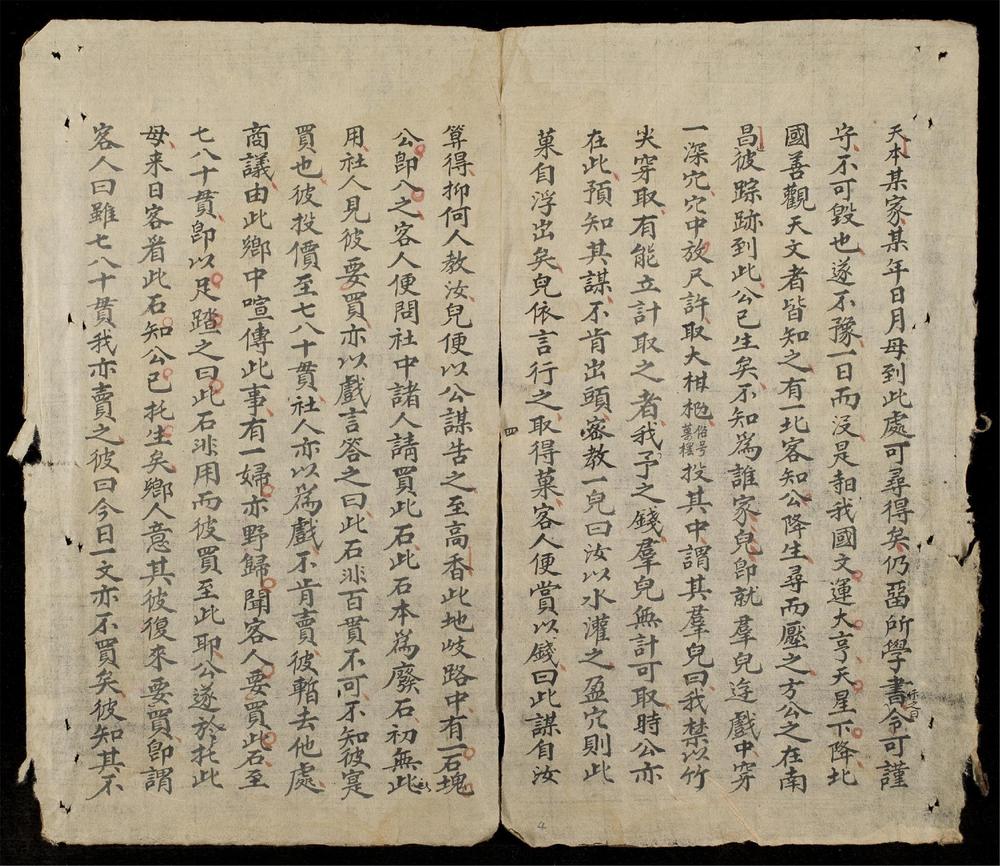 天本某家某年日月母到此處可尋得矣仍畱所學書令可謹
守不可毀也遂不豫一日而沒是韶我國文運大亨天星下降北
國善觀天文者皆知之有一北客知公降生尋而壓之方公之在南
昌彼踪跡到此公已生矣不知爲誰家兒卽就羣兒遊戲中穿
一深穴穴中放尺許取大柑杝俗号菓橙投其中謂其羣兒曰我禁以竹
尖穿取有能立計取之者我予之錢羣兒無計可取時公亦
在此預知其謀不肯出頭密教一兒曰汝以水灌之盈穴則此
菓自浮出矣兒依言行之取得菓客人便賞以錢曰此謀自汝
四
算得抑何人教汝兒便以公謀告之至高香此地岐路中有一石塊
公卽入之客人便問社中諸人請買此石此石本爲廢石初無此
用社人見彼要買亦以戲言答之曰此石非百貫不可不知彼寔
買也彼投價至七八十貫社人亦以爲戲不肯賣彼暫去他處
商議由此鄉中喧傳此事有一婦亦野歸聞客人要買此石至
七八十貫卽以足踏之曰此石非用而彼買至此耶公遂於托此
母來日客看此石知公已托生矣鄉人意其彼復來要買卽謂
客人曰雖七八十貫我亦賣之彼曰今日一文亦不買矣彼知其不
4